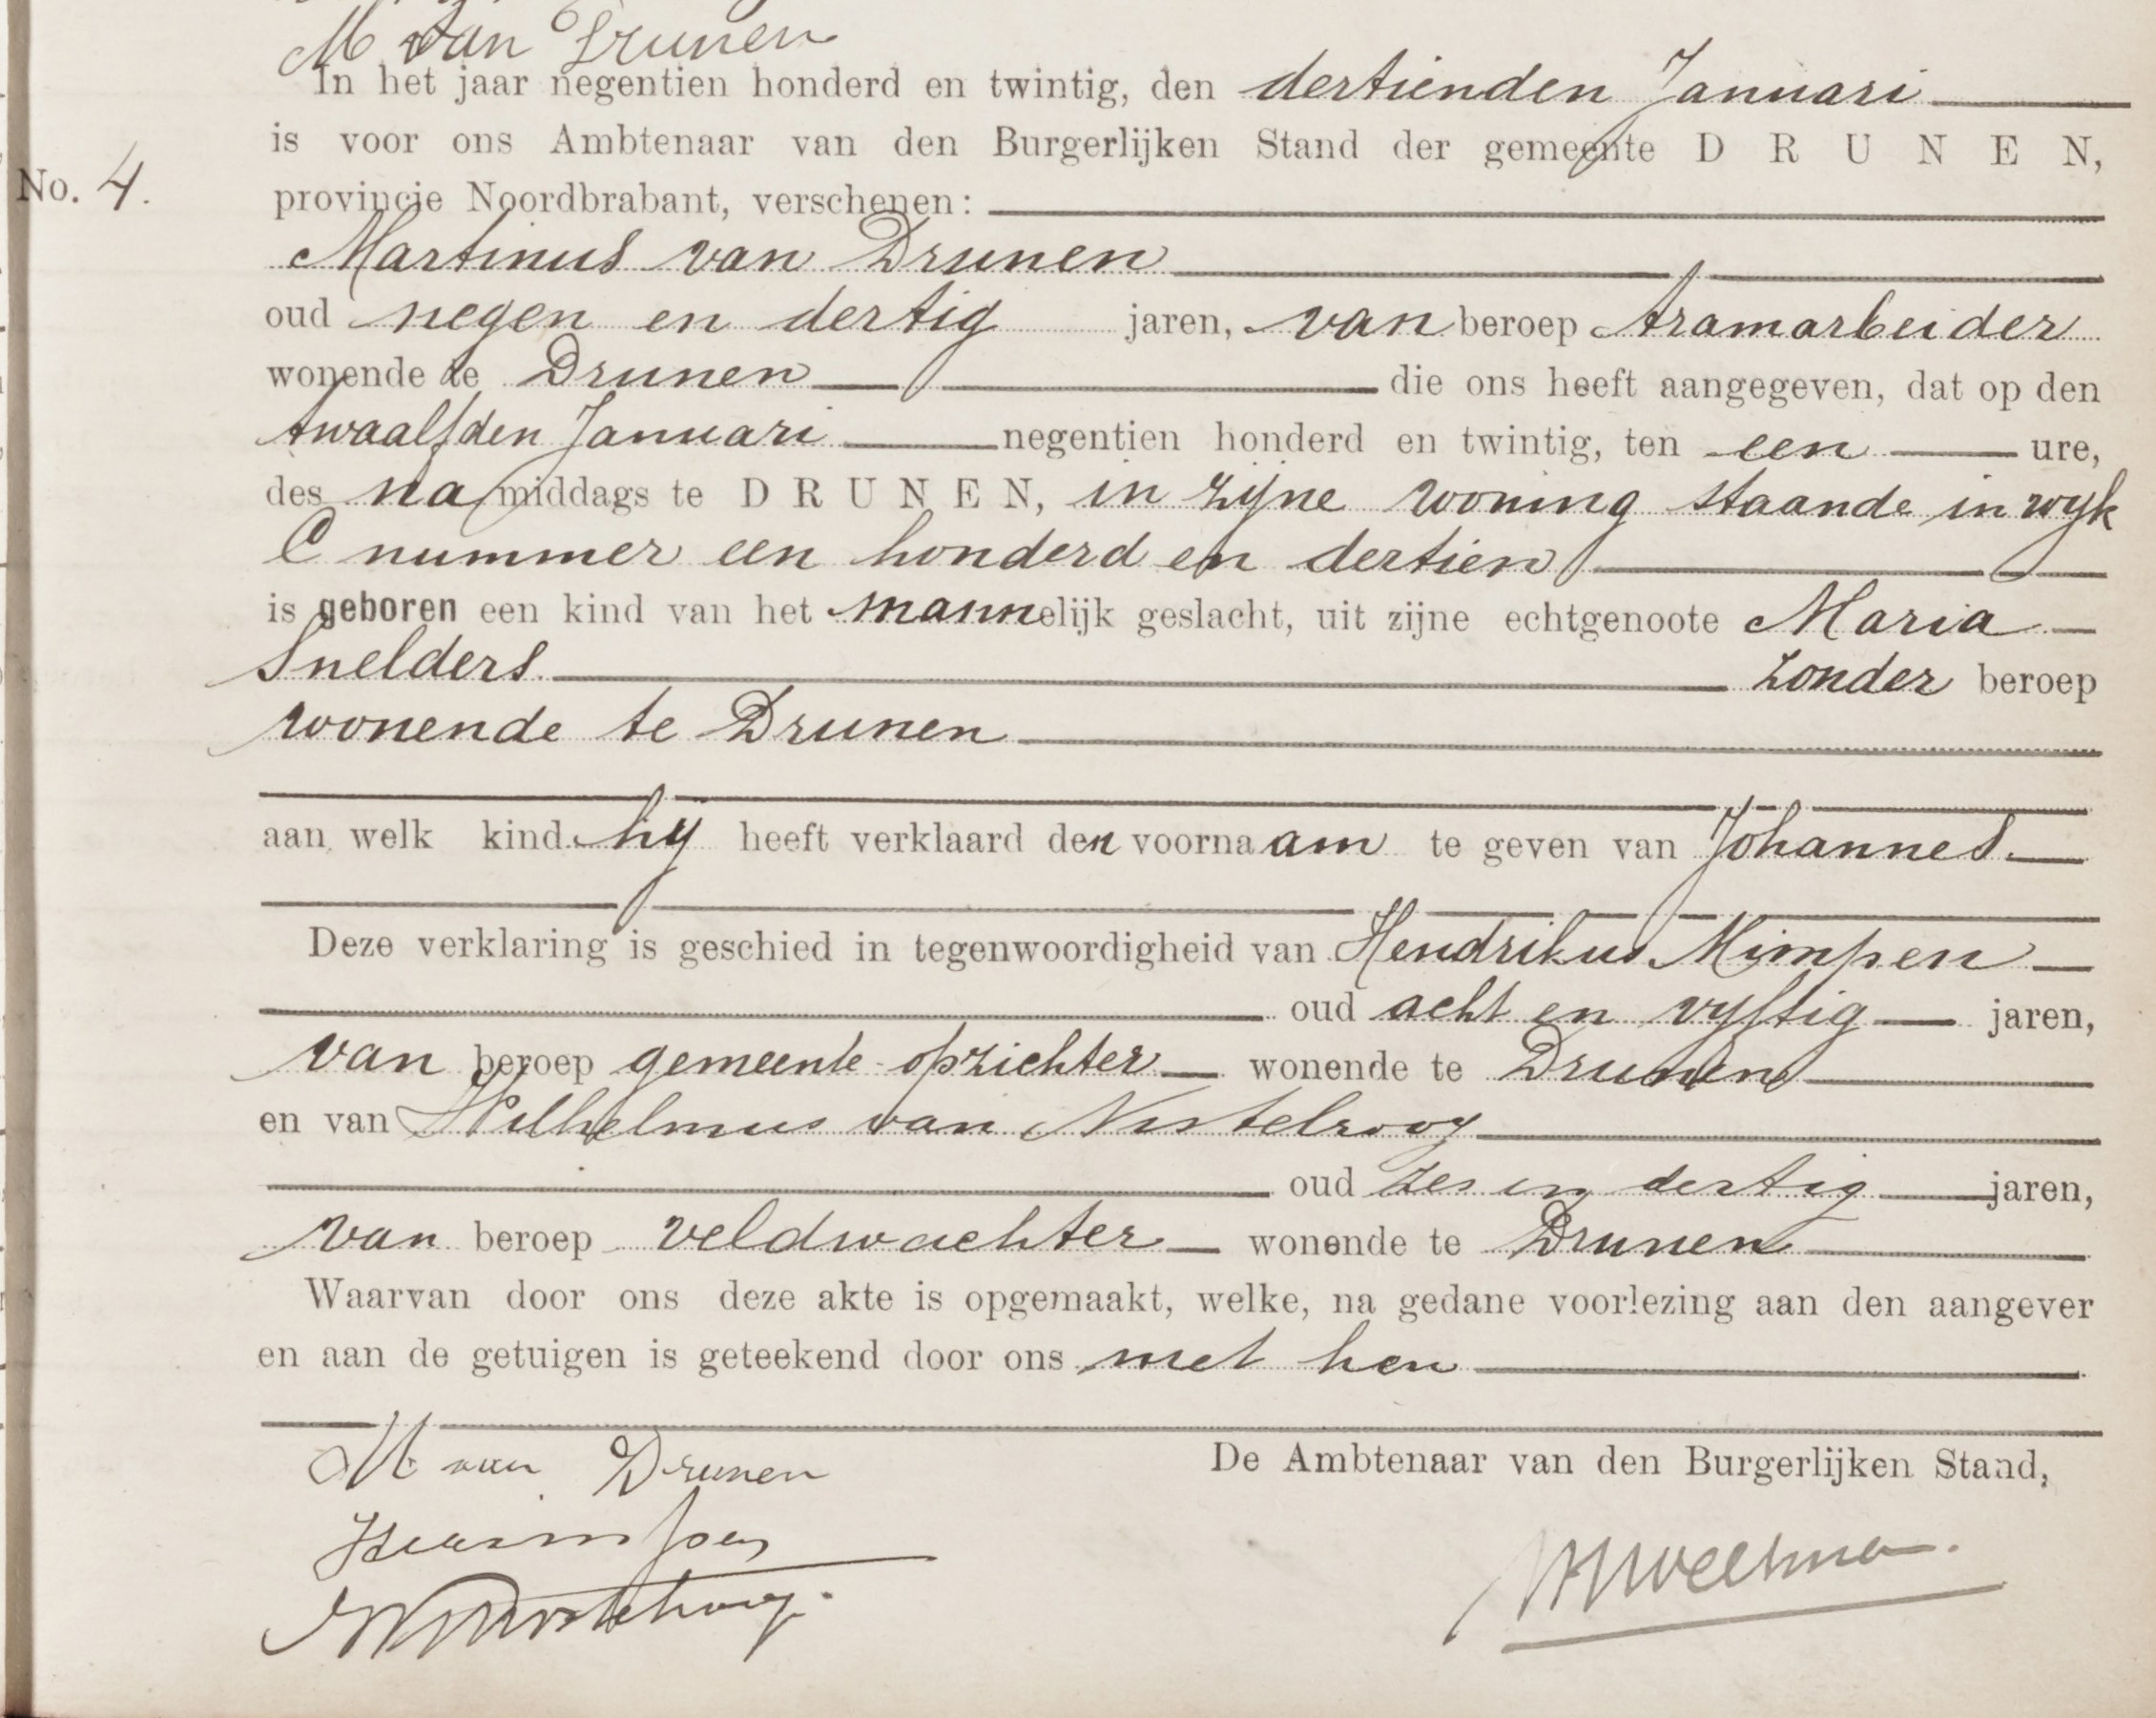 M van Drunen
In het jaar negentien honderd en twintig, den dertienden Januari
is voor ons Ambtenaar van den Burgerlijken Stand der gemeente D R U N E N,
No. 4.
provincie Noordbrabant, verschenen:
Martinus van Drunen
oud negen en dertig jaren, van beroep tramarbeider
wonende te Drunen die ons heeft aangegeven, dat op den
twaalfden Januari negentien honderd en twintig, ten een ure,
des namiddags te D R U N E N, in zijne woning staande in wyk
C nummer een honderd en dertien
is geboren een kind van het mannelijk geslacht, uit zijne echtgenoote Maria
Snelders. zonder beroep
wonende te Drunen
aan welk kind hy heeft verklaard den voornaam te geven van Johannes.
Deze verklaring is geschied in tegenwoordigheid van Hendrikus Mimpen
oud acht en vyftig jaren,
van beroep gemeente-opzichter wonende te Drunen
en van Wilhelmus van Nistelrooy
oud zes en dertig jaren,
van beroep veldwachter wonende te Drunen
Waarvan door ons deze akte is opgemaakt, welke, na gedane voorlezing aan den aangever
en aan de getuigen is geteekend door ons met hen
M van Drunen
De Ambtenaar van den Burgerlijken Stand,